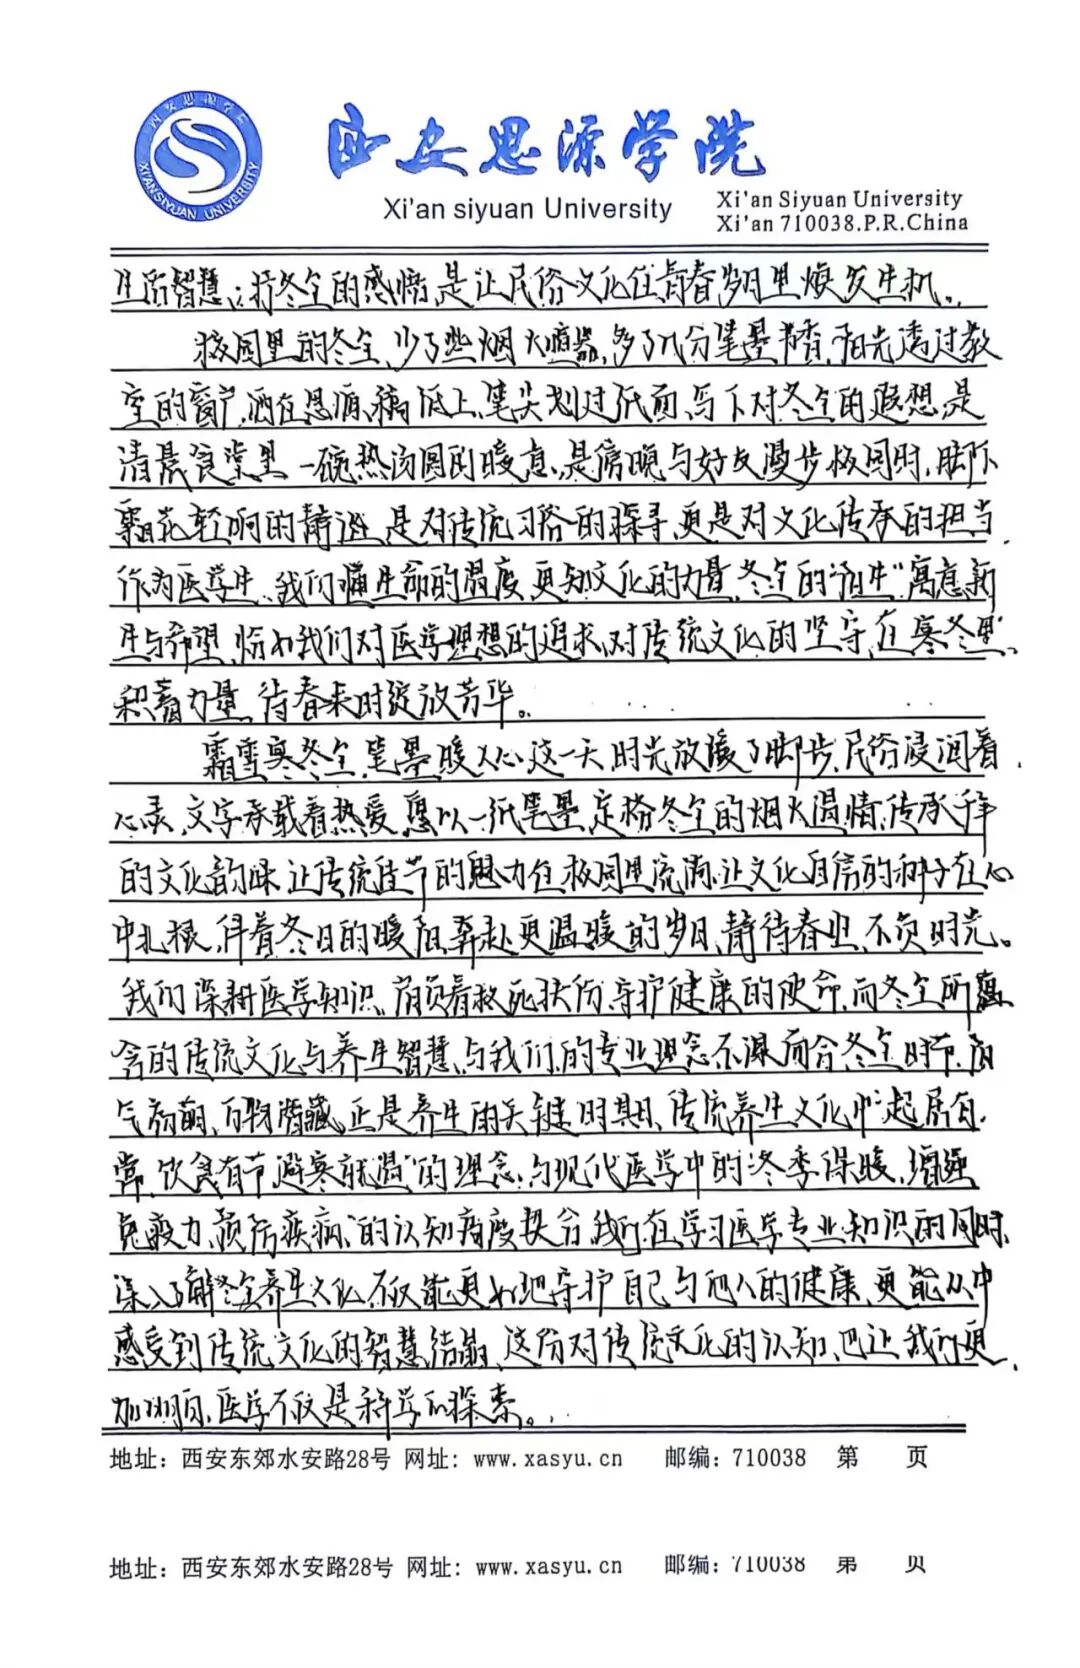 西安思源学院
Xi'an siyuan University
Xi'an Siyuan University
Xi'an 710038.P.R.China
西安思源学院
XI'AN SIYUAN UNIVERSITY
生活智慧;将冬至的感悟,是让民俗文化在青春岁月里焕发生机。
校园里的冬至,少了些烟火喧嚣,多了几分笔墨书香,阳光透过教
室的窗户,洒在思源稿纸上,笔尖划过纸面,写下对冬至的遐想,是
清晨食堂里一碗热汤圆的暖意,是傍晚与好友漫步校园时,脚下
霜花轻响的静谧,是对传统习俗的探寻,更是对文化传承的担当,
作为医学生,我们懂生命的温度,更知文化的力量,冬至的"阳生"寓意新
生与希望,恰如我们对医学理想的追求,对传统文化的坚守,在寒冬里,
积蓄力量,待春来时绽放芳华。
霜雪寒冬至,笔墨暖人心,这一天,时光放缓了脚步,民俗浸润着
心灵,文字承载着热爱,愿以一纸笔墨,定格冬至的烟火温情,传承千年
的文化韵味,让传统佳节的魅力在校园里流淌,让文化自信的种子在心
中扎根,伴着冬日的暖阳,奔赴更温暖的岁月,静待春归,不负时光。
我们深耕医学知识,肩负着救死扶伤,守护健康的使命,而冬至所蕴
含的传统文化与养生智慧,与我们的专业理念不谋而合,冬至时节,阳
气初萌,万物潜藏,正是养生的关键时期,传统养生文化中"起居有
常,饮食有节,避寒就温"的理念,与现代医学中的"冬季保暖,增强
免疫力,预防疾病"的认知高度契合,我们在学习医学专业知识的同时,
深入了解冬至养生文化,不仅能更好地守护自己与他人的健康,更能从中
感受到传统文化的智慧结晶,这份对传统文化的认知,也让我们更
加明白,医学不仅是科学的探索。
地址: 西安东郊水安路28号 网址: www.xasyu.cn 邮编: 710038 第 页
地址: 西安东郊水安路28号 网址: www.xasyu.cn 邮编: 710038 第 页